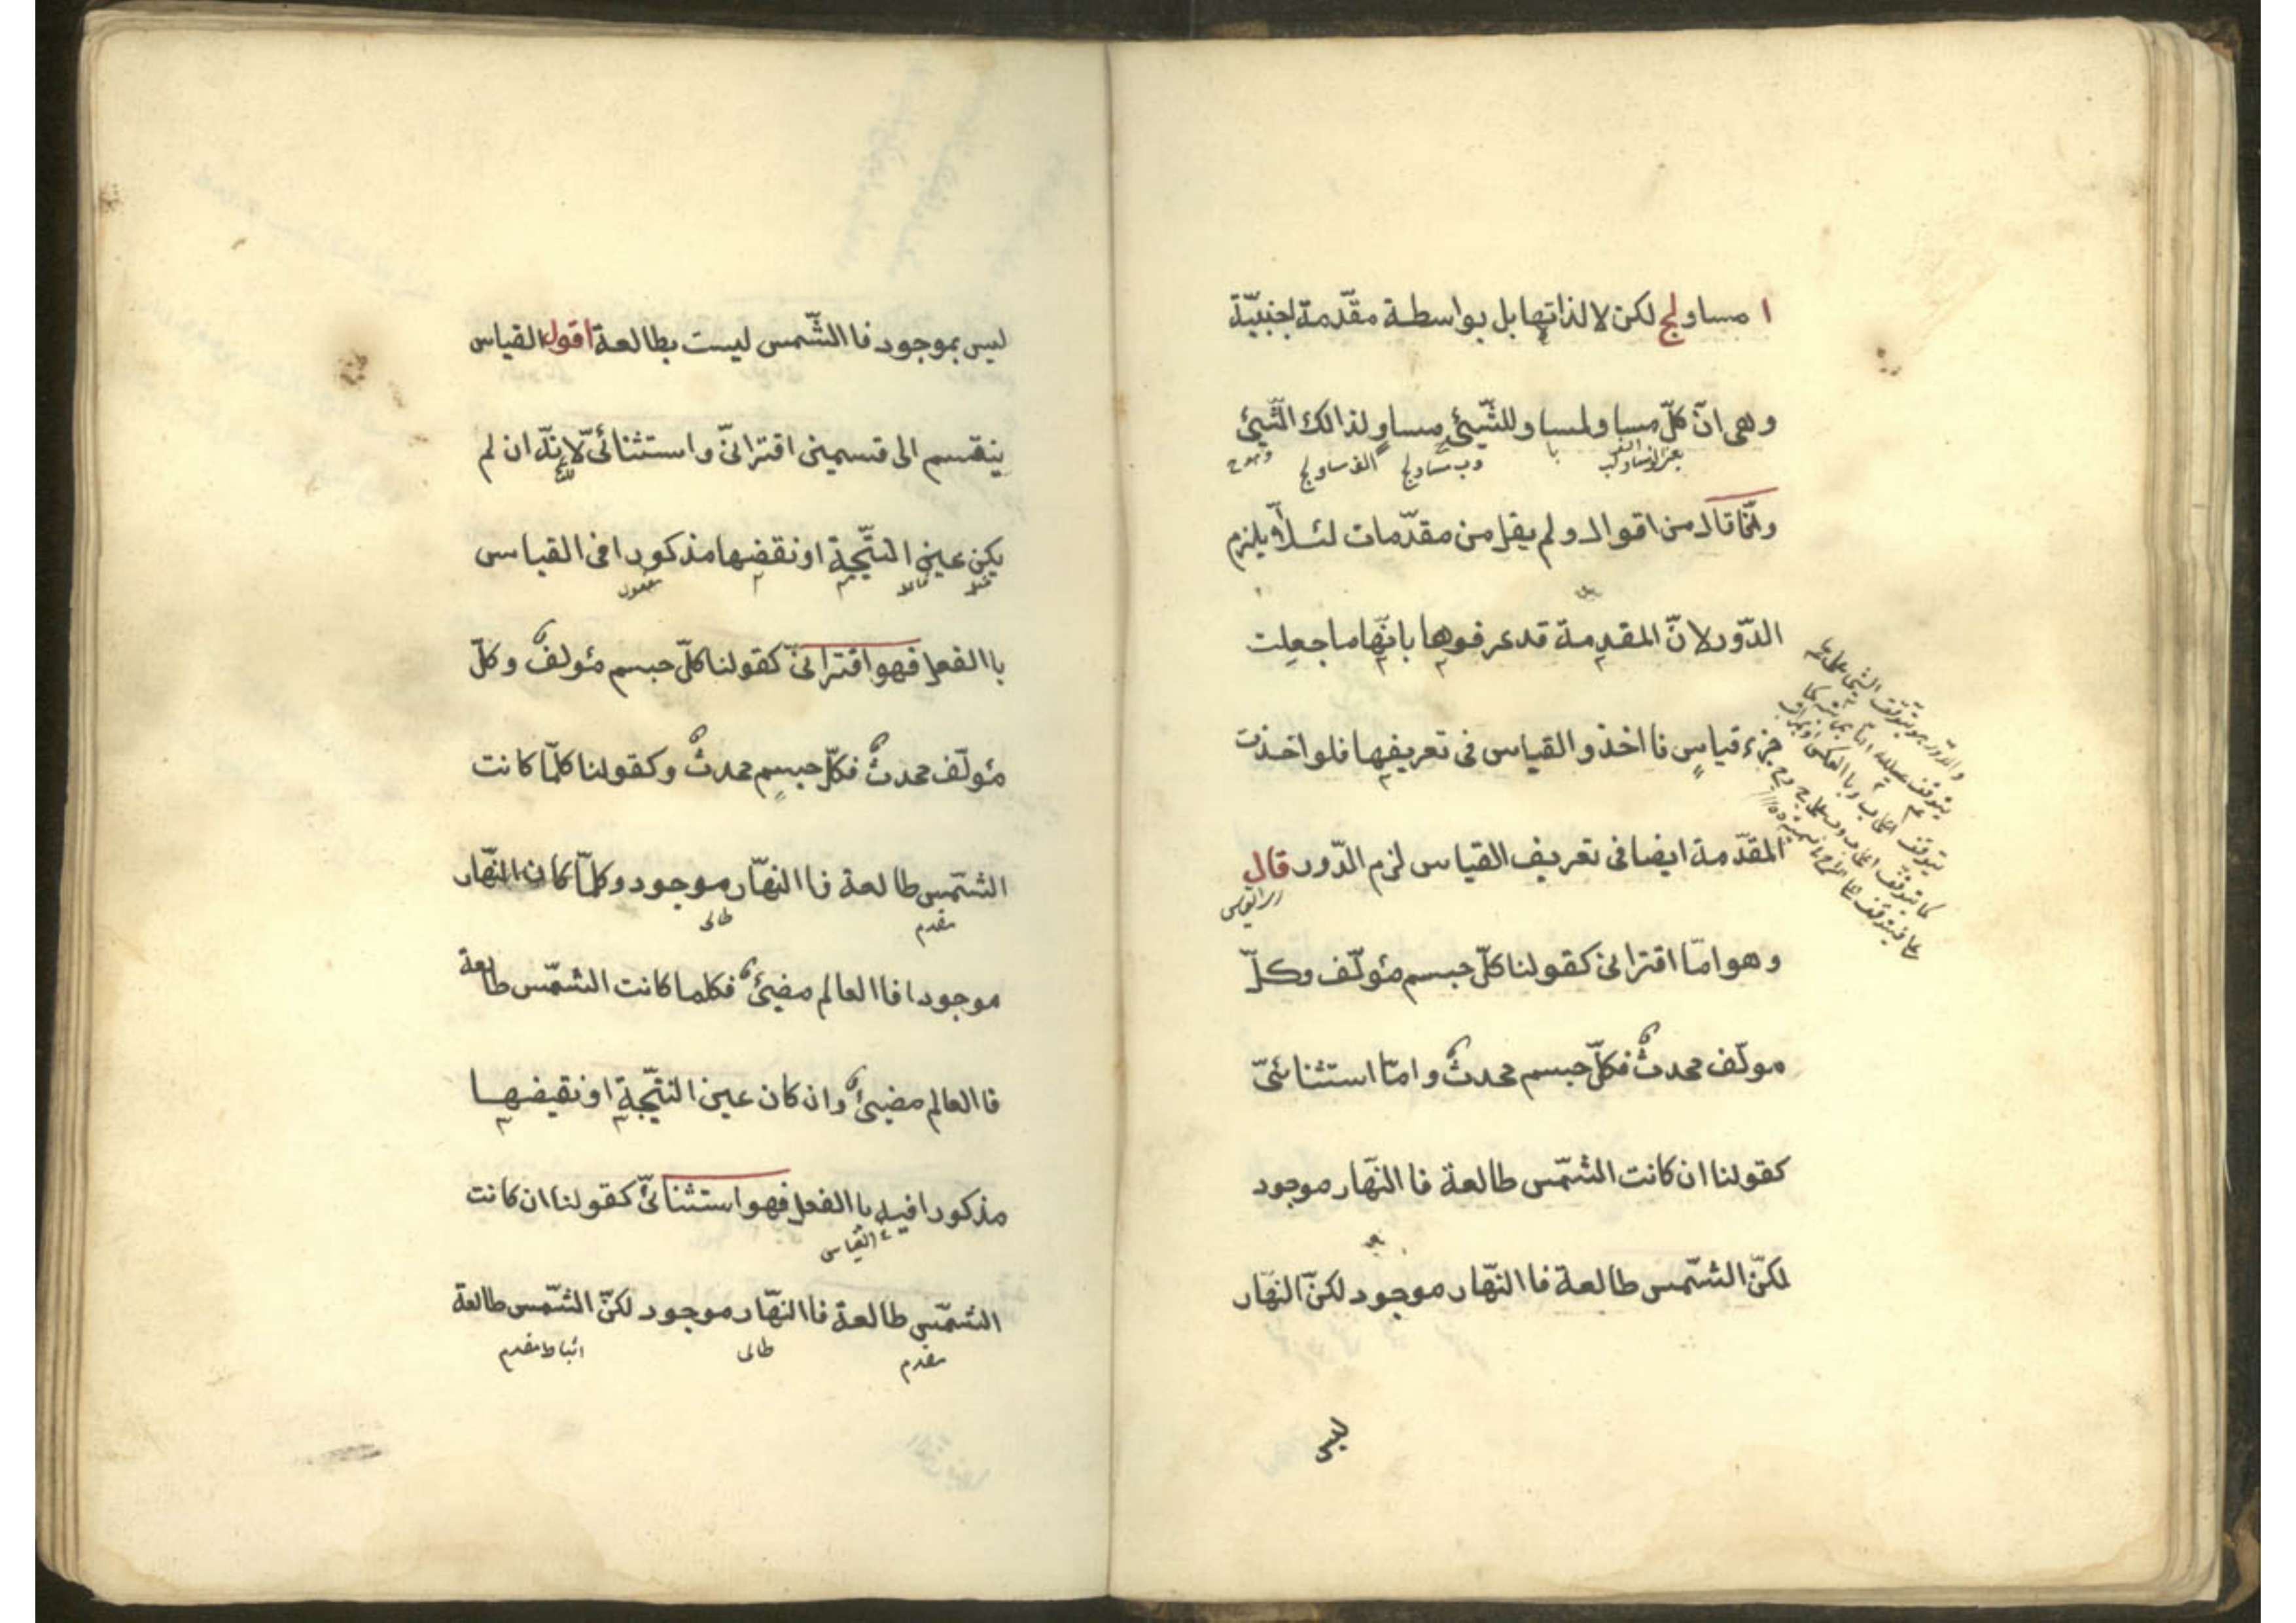 ا مساو لج لكن لا لذاتها بل بواسطة مقدّمة اجنبيّة
وهى انّ كلّ مساو لمساو للشّيئ مساوٍ لذالك الشّيئ
وب مساو لج
الف مساو لج
وانّما قال من اقوال ولم يقل من مقدّمات لئلّا يلزم
الدّور لانّ المقدمة قد عرفوها بانّها ما جعلت
جزء قياسٍ فا اخذو القياس فى تعريفها فلو اخذت
المقدّمة ايضا فى تعريف القياس لزم الدّور قال
وهو امّا اقترانى كقولنا كلّ جسم مئولّف وكلّ
مولّف محدثٌ فكلّ جسم محدثٌ وامّا استثنائىّ
كقولنا ان كانت الشمّس طالعة فا النهّار موجود
لكنّ الشمّس طالعة فا النهّار موجود لكنّ النهّار
ليس
ليس بموجود فا الشّمس ليست بطالعة اقول القياس
ينقسم الى قسمينى اقترانىّ واستثنائىّ لانّه ان لم
يكن عين النتّيجة او نقضها مذكورا فى القياس
با الفعل فهو اقترانىّ كقولنا كلّ جسم مئولفٌ وكلّ
مئولّف محدثٌ فكلّ جسمٍ محدثٌ وكقولنا كلمّا كانت
الشمّس طالعة فا النهّار موجود وكلمّا كان النهّار
مقدم
طالى
موجودا فا العالم مضيئٌ فكلما كانت الشمّس طالعة
فا العالم مضيئٌ وان كان عين النتّيجة او نقيضها
مذكورا فيه با الفعل فهو استثنائىّ كقولنا ان كانت
القياس
الشمّس طالعة فا النهّار موجود لكنّ الشمّس طالعة
مقدم
طالى
اثبات مقدم